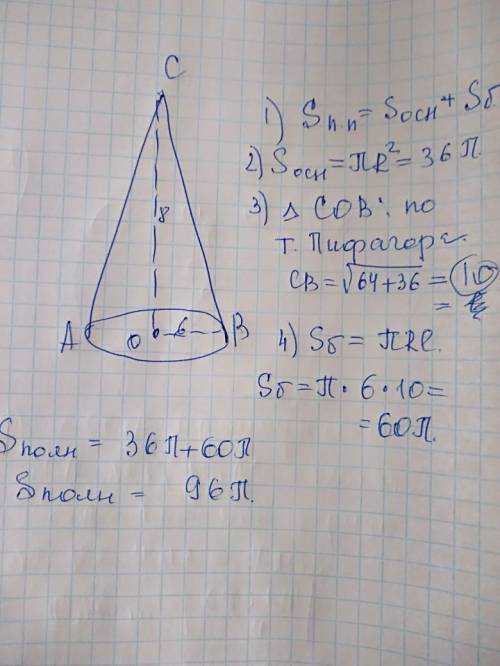 C
8
A
O 6 B
1) Sп.п = Sосн + Sб
2) Sосн = πR² = 36π
3) △ COB: по
т. Пифагора.
CB = √64+36 = 10
=
4) Sб = πRl.
Sб = π · 6 · 10 =
= 60π.
Sполн = 36π + 60π
Sполн = 96π.